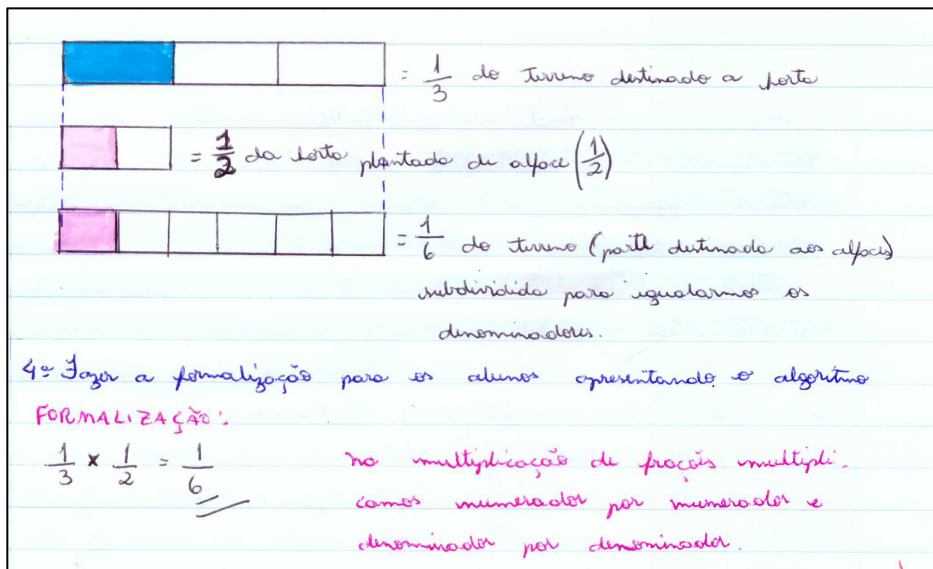 = 1/3 do terreno destinado a horta
= 1/2 da horta plantada de alface (1/2)
= 1/6 do terreno (parte destinada aos alfaces)
subdividida para igualarmos os
denominadores.
4º Fazer a formalização para os alunos apresentando o algoritmo
FORMALIZAÇÃO:
1/3 x 1/2 = 1/6
na multiplicação de frações multipli-
camos numerador por numerador e
denominador por denominador.